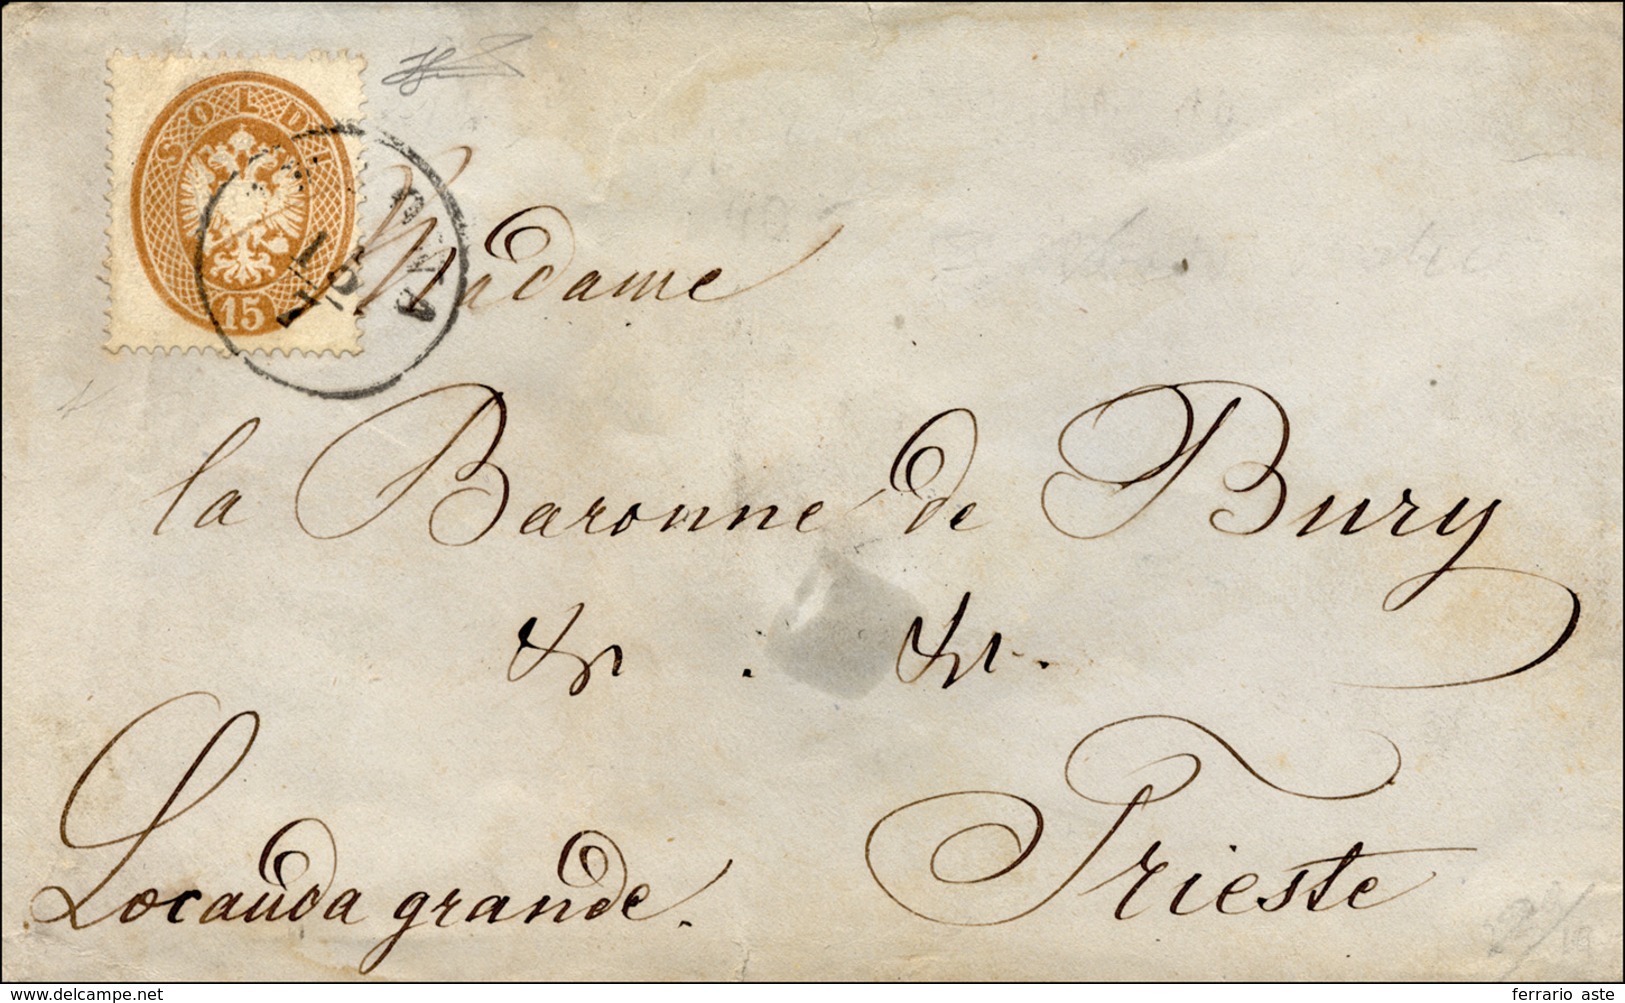 SOLDI
15
Madame
la Baronne de Bury
& &.
Locanda grande.
Trieste
delcampe.net
ferrario aste